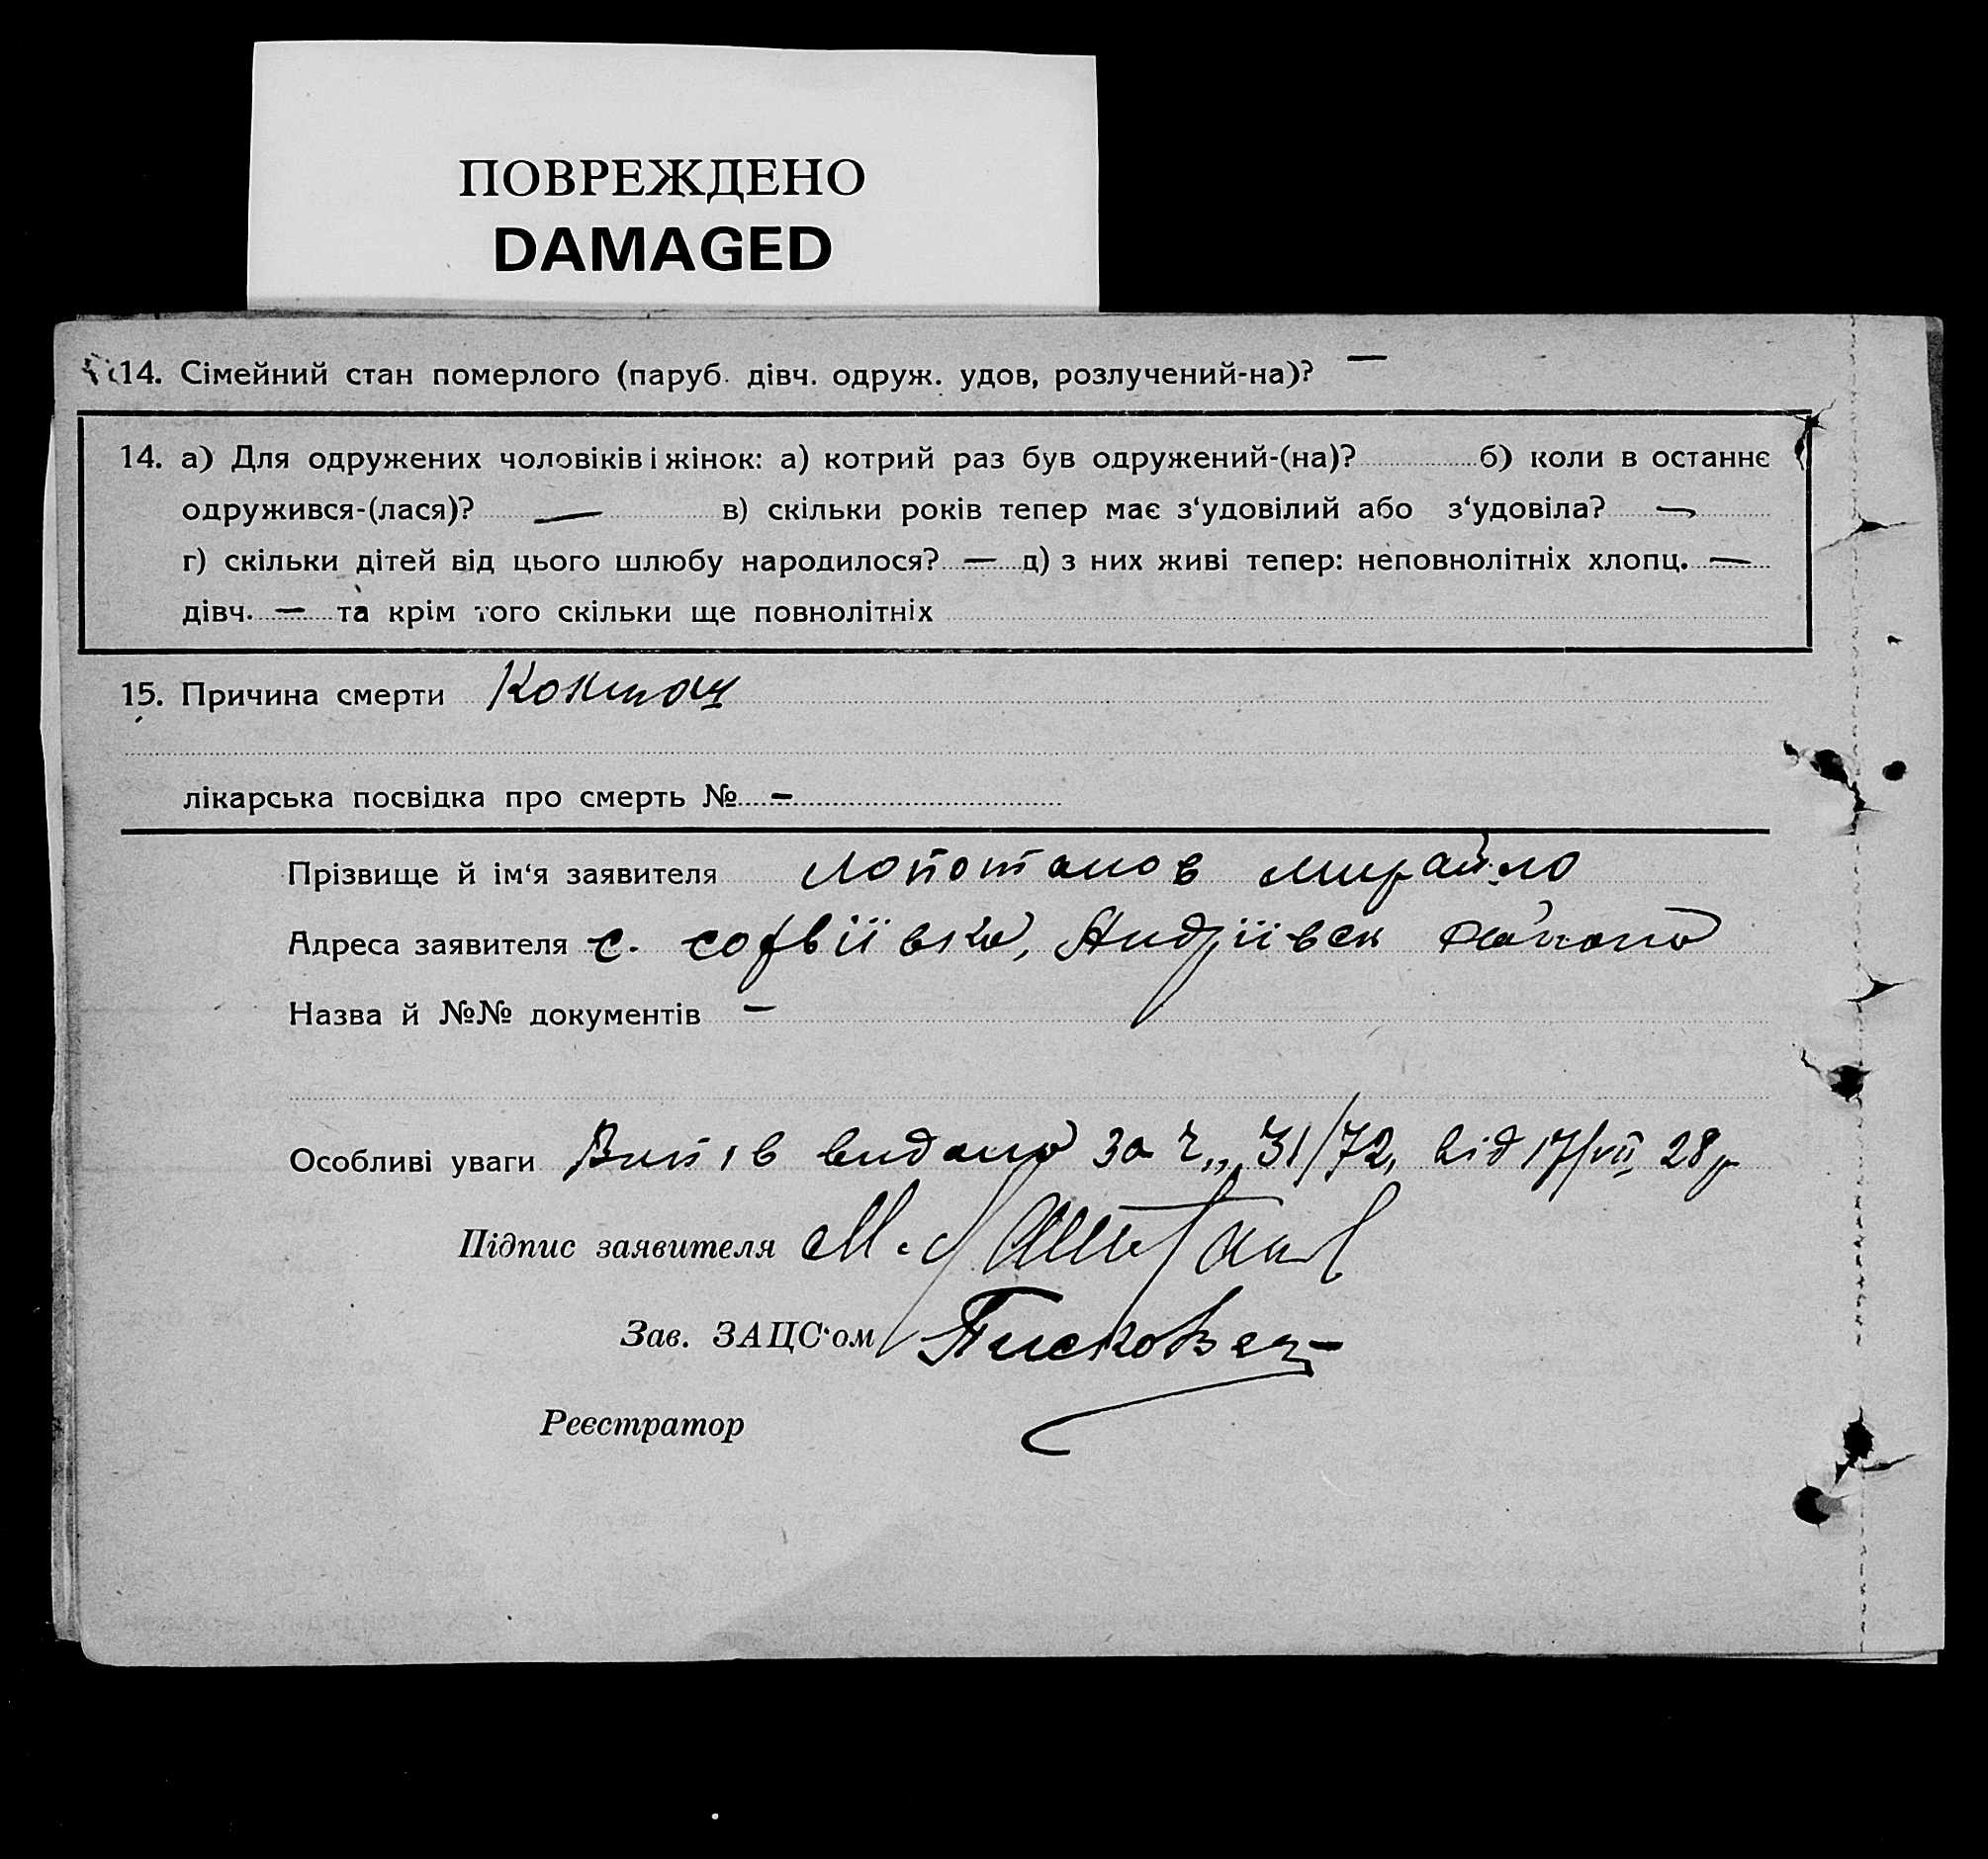 ПОВРЕЖДЕНО
DAMAGED
14. Сімейний стан померлого (паруб. дівч. одруж. удов, розлучений-на)? —
14. а) Для одружених чоловіків і жінок: а) котрий раз був одружений-(на)? б) коли в останнє
одружився-(лася)? — в) скільки років тепер має з‘удовілий або з‘удовіла? —
г) скільки дітей від цього шлюбу народилося? — д) з них живі тепер: неповнолітніх хлопц. —
дівч. — та крім того скільки ще повнолітніх
15. Причина смерти Коклюш
лікарська посвідка про смерть № —
Прізвище й ім‘я заявителя Михайло
Адреса заявителя с. Софіївка, Андріївськ району
Назва й №№ документів —
Особливі уваги видано за ч. 31/72, від 17/VII 28 р
Підпис заявителя М.
Зав. ЗАЦС‘ом Писковец
Реєстратор